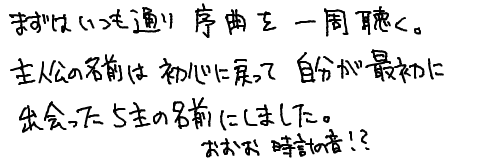 まずはいつも通り 序曲を 一周聴く。
主人公の名前は 初心に戻って 自分が最初に
出会った5主の名前にしました。
おおお 時計の音!?